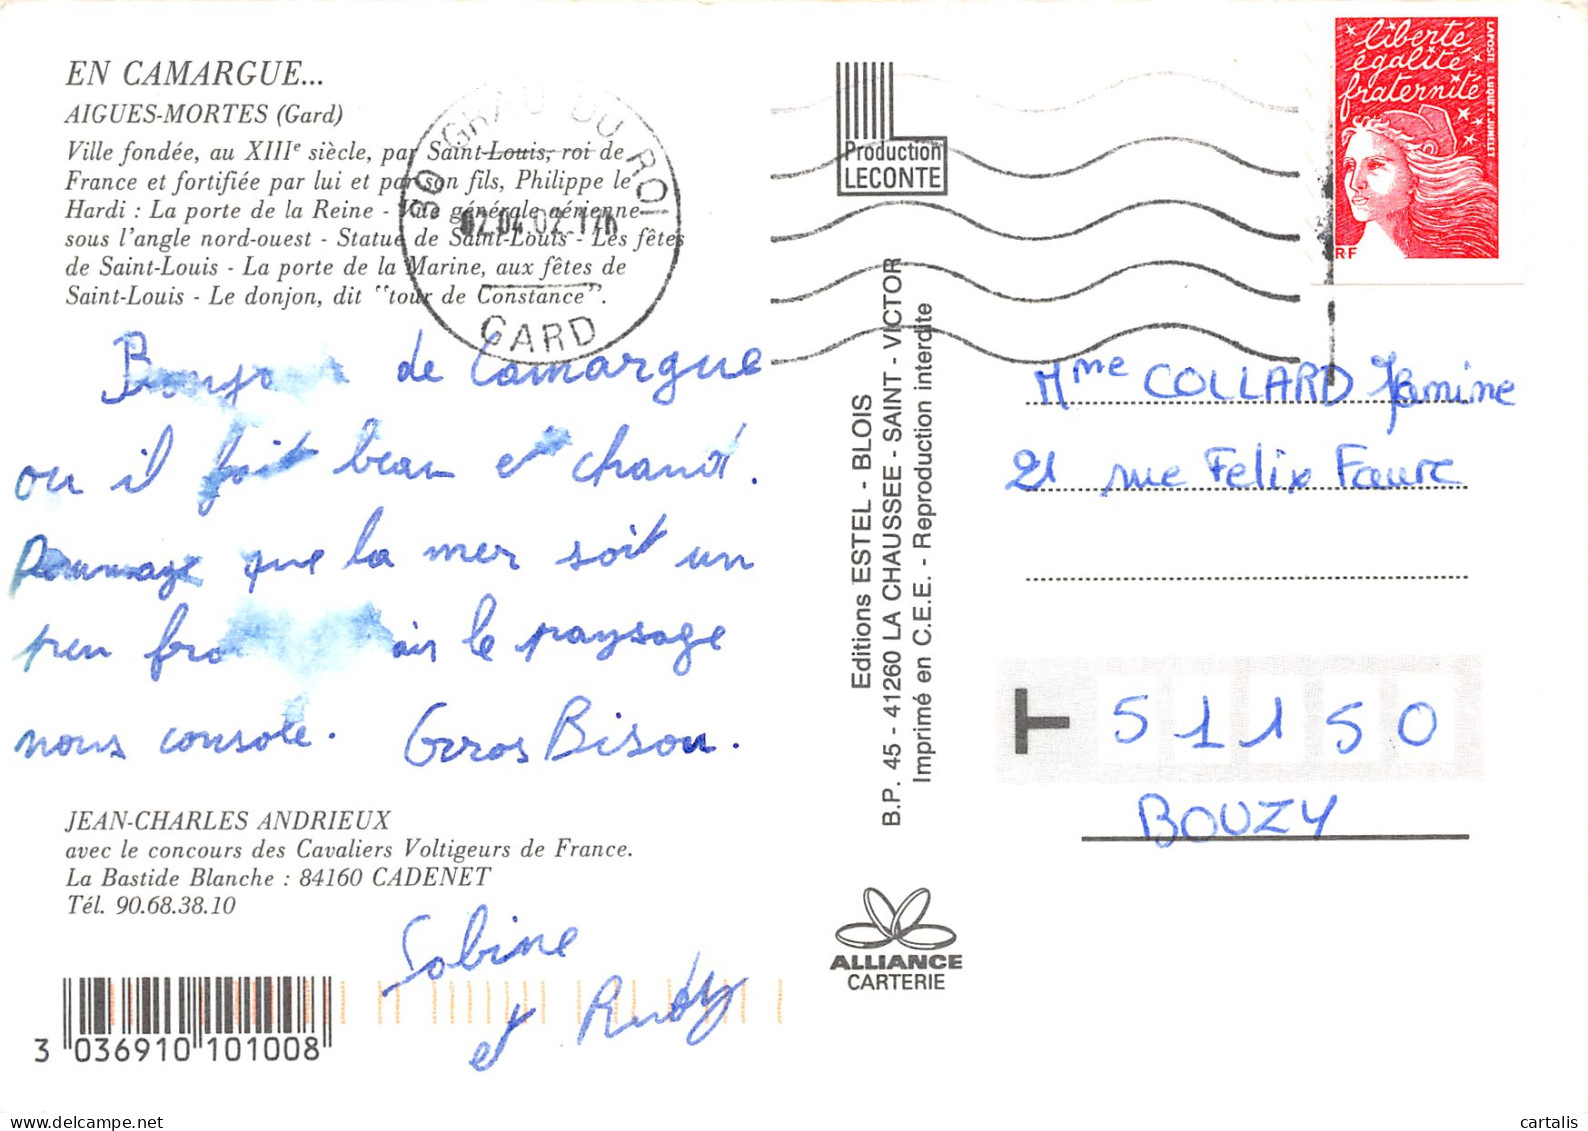 EN CAMARGUE...
AIGUES-MORTES (Gard)
Ville fondée, au XIIIe siècle, par Saint-Louis, roi de
France et fortifiée par lui et par son fils, Philippe le
Hardi : La porte de la Reine - Vue générale aérienne
sous l'angle nord-ouest - Statue de Saint-Louis - Les fêtes
de Saint-Louis - La porte de la Marine, aux fêtes de
Saint-Louis - Le donjon, dit "tour de Constance".
30 GRAU DU ROI
02.04.02.17h
GARD
Bonjour de Camargue
ou il fait beau et chaud.
Dommage que la mer soit un
peu fro ais le paysage
nous console. Gros Bisou.
JEAN-CHARLES ANDRIEUX
avec le concours des Cavaliers Voltigeurs de France.
La Bastide Blanche : 84160 CADENET
Tél. 90.68.38.10
Sabine
et Rudy
3 036910 101008
Production
LECONTE
Editions ESTEL - BLOIS
B.P. 45 - 41260 LA CHAUSSEE - SAINT - VICTOR
Imprimé en C.E.E. - Reproduction interdite
ALLIANCE
CARTERIE
liberté
égalité
fraternité
LA POSTE LUQUET.JUMELET
RF
Mme COLLARD Jeanine
21 rue Felix Faure
51150
BOUZY
cartalis